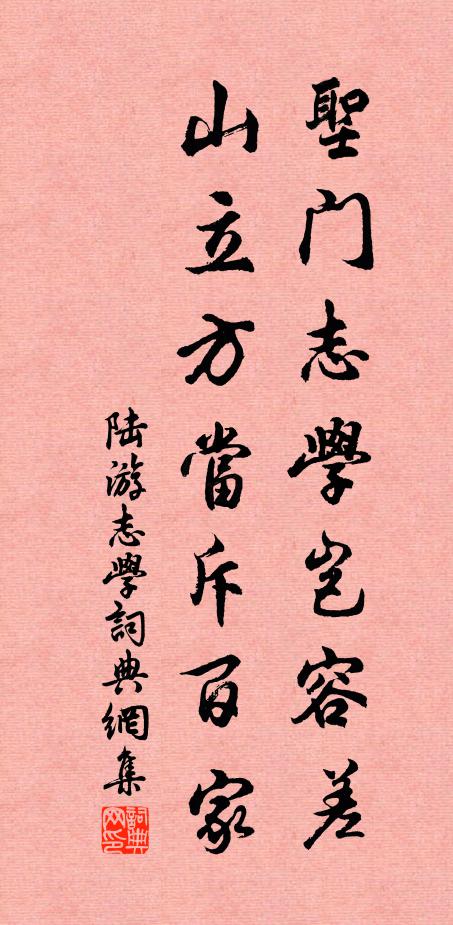 聖门志學岂容差
山立方當斥百家
陸游志學詞典網集
詞典网印